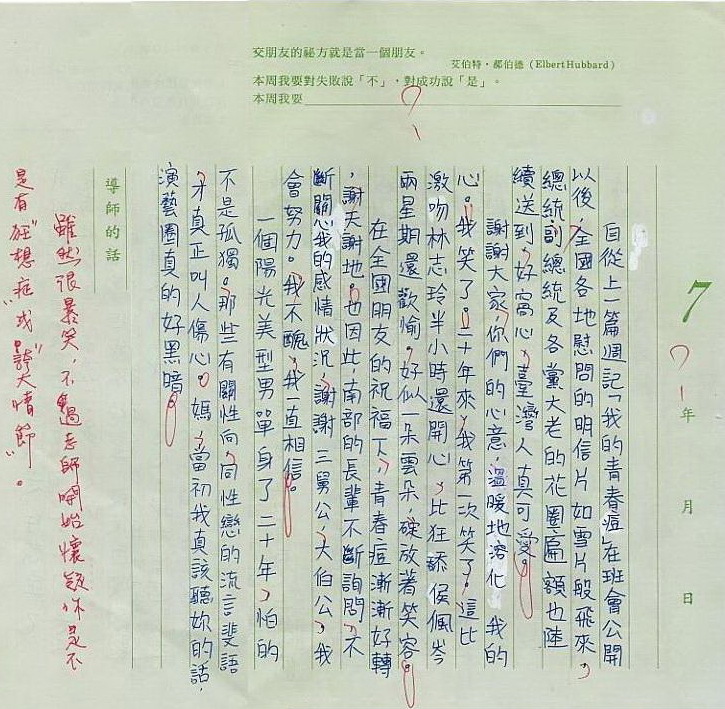 交朋友的祕方就是當一個朋友。
艾伯特・郝伯德(Elbert Hubbard)
本周我要對失敗說「不」,對成功說「是」。
本周我要
7
年 月 日
自從上一篇週記「我的青春痘」在班會公開
以後,全國各地慰問的明信片如雪片般飛來,
總統、副總統及各黨大老的花圈匾額也陸
續送到,好窩心,臺灣人真可愛。
謝謝大家,你們的心意,溫暖地溶化我的
心。我笑了。二十年來,我第一次笑了。這比
激吻林志玲半小時還開心,比狂舔侯佩岑
兩星期還歡愉。好似一朵雲朵,碇放著笑容。
在全國朋友的祝福下,青春痘漸漸好轉
,謝天謝地。也因此,南部的長輩不斷詢問,不
斷關心我的感情狀況,謝謝三舅公,大伯公,我
會努力。我不醜,我一直相信。
一個陽光美型男單身了二十年,怕的
不是孤獨。那些有關性向,同性戀的流言斐語
,才真正叫人傷心。媽,當初我真該聽妳的話,
演藝圈真的好黑暗。
導師的話
雖然很爆笑,不過老師開始懷疑你是不
是有"妄想症"或"誇大情節"。